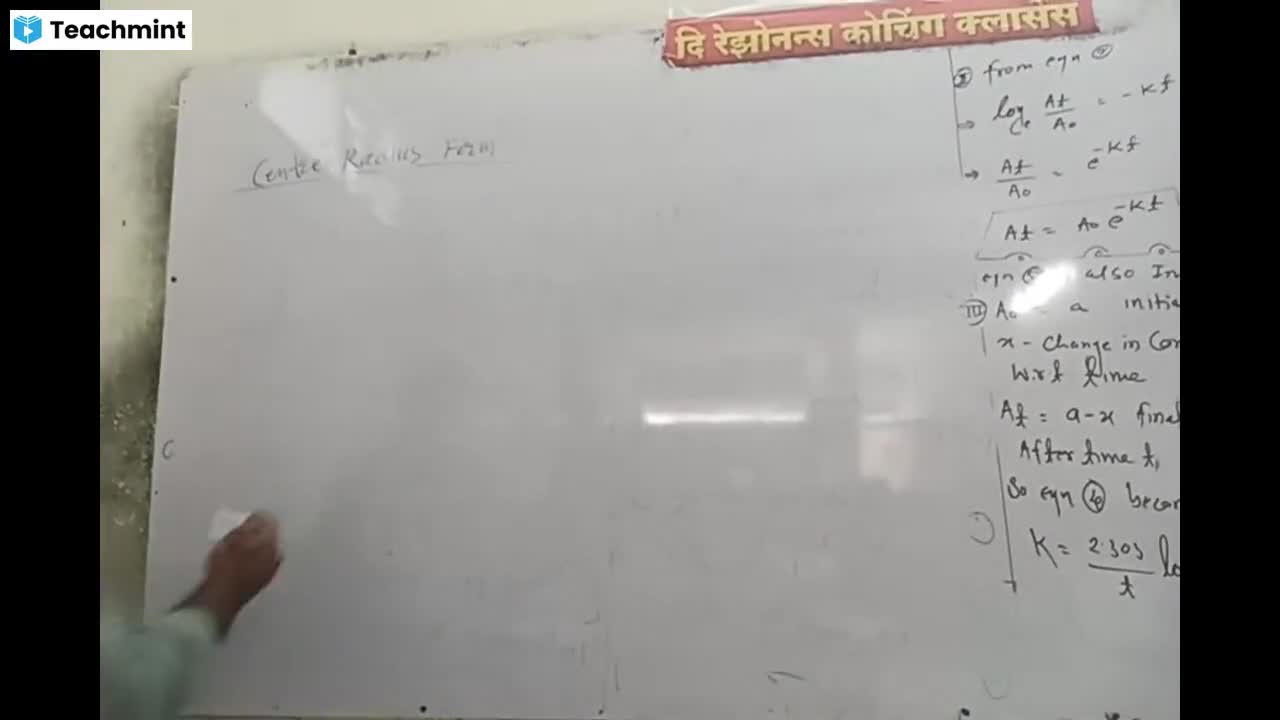 Teachmint
दि रेझोनन्स कोचिंग क्लासेस
Centre Radius Form
from eqn
→ log_e At/A₀ = -Kt
→ At/A₀ = e^-Kt
At = A₀ e^-Kt
eqn also In
III A₀ = a initia
x - Change in Con
w.r.t time
At = a-x final
After time t,
So eqn becom
K = 2.303/t lo